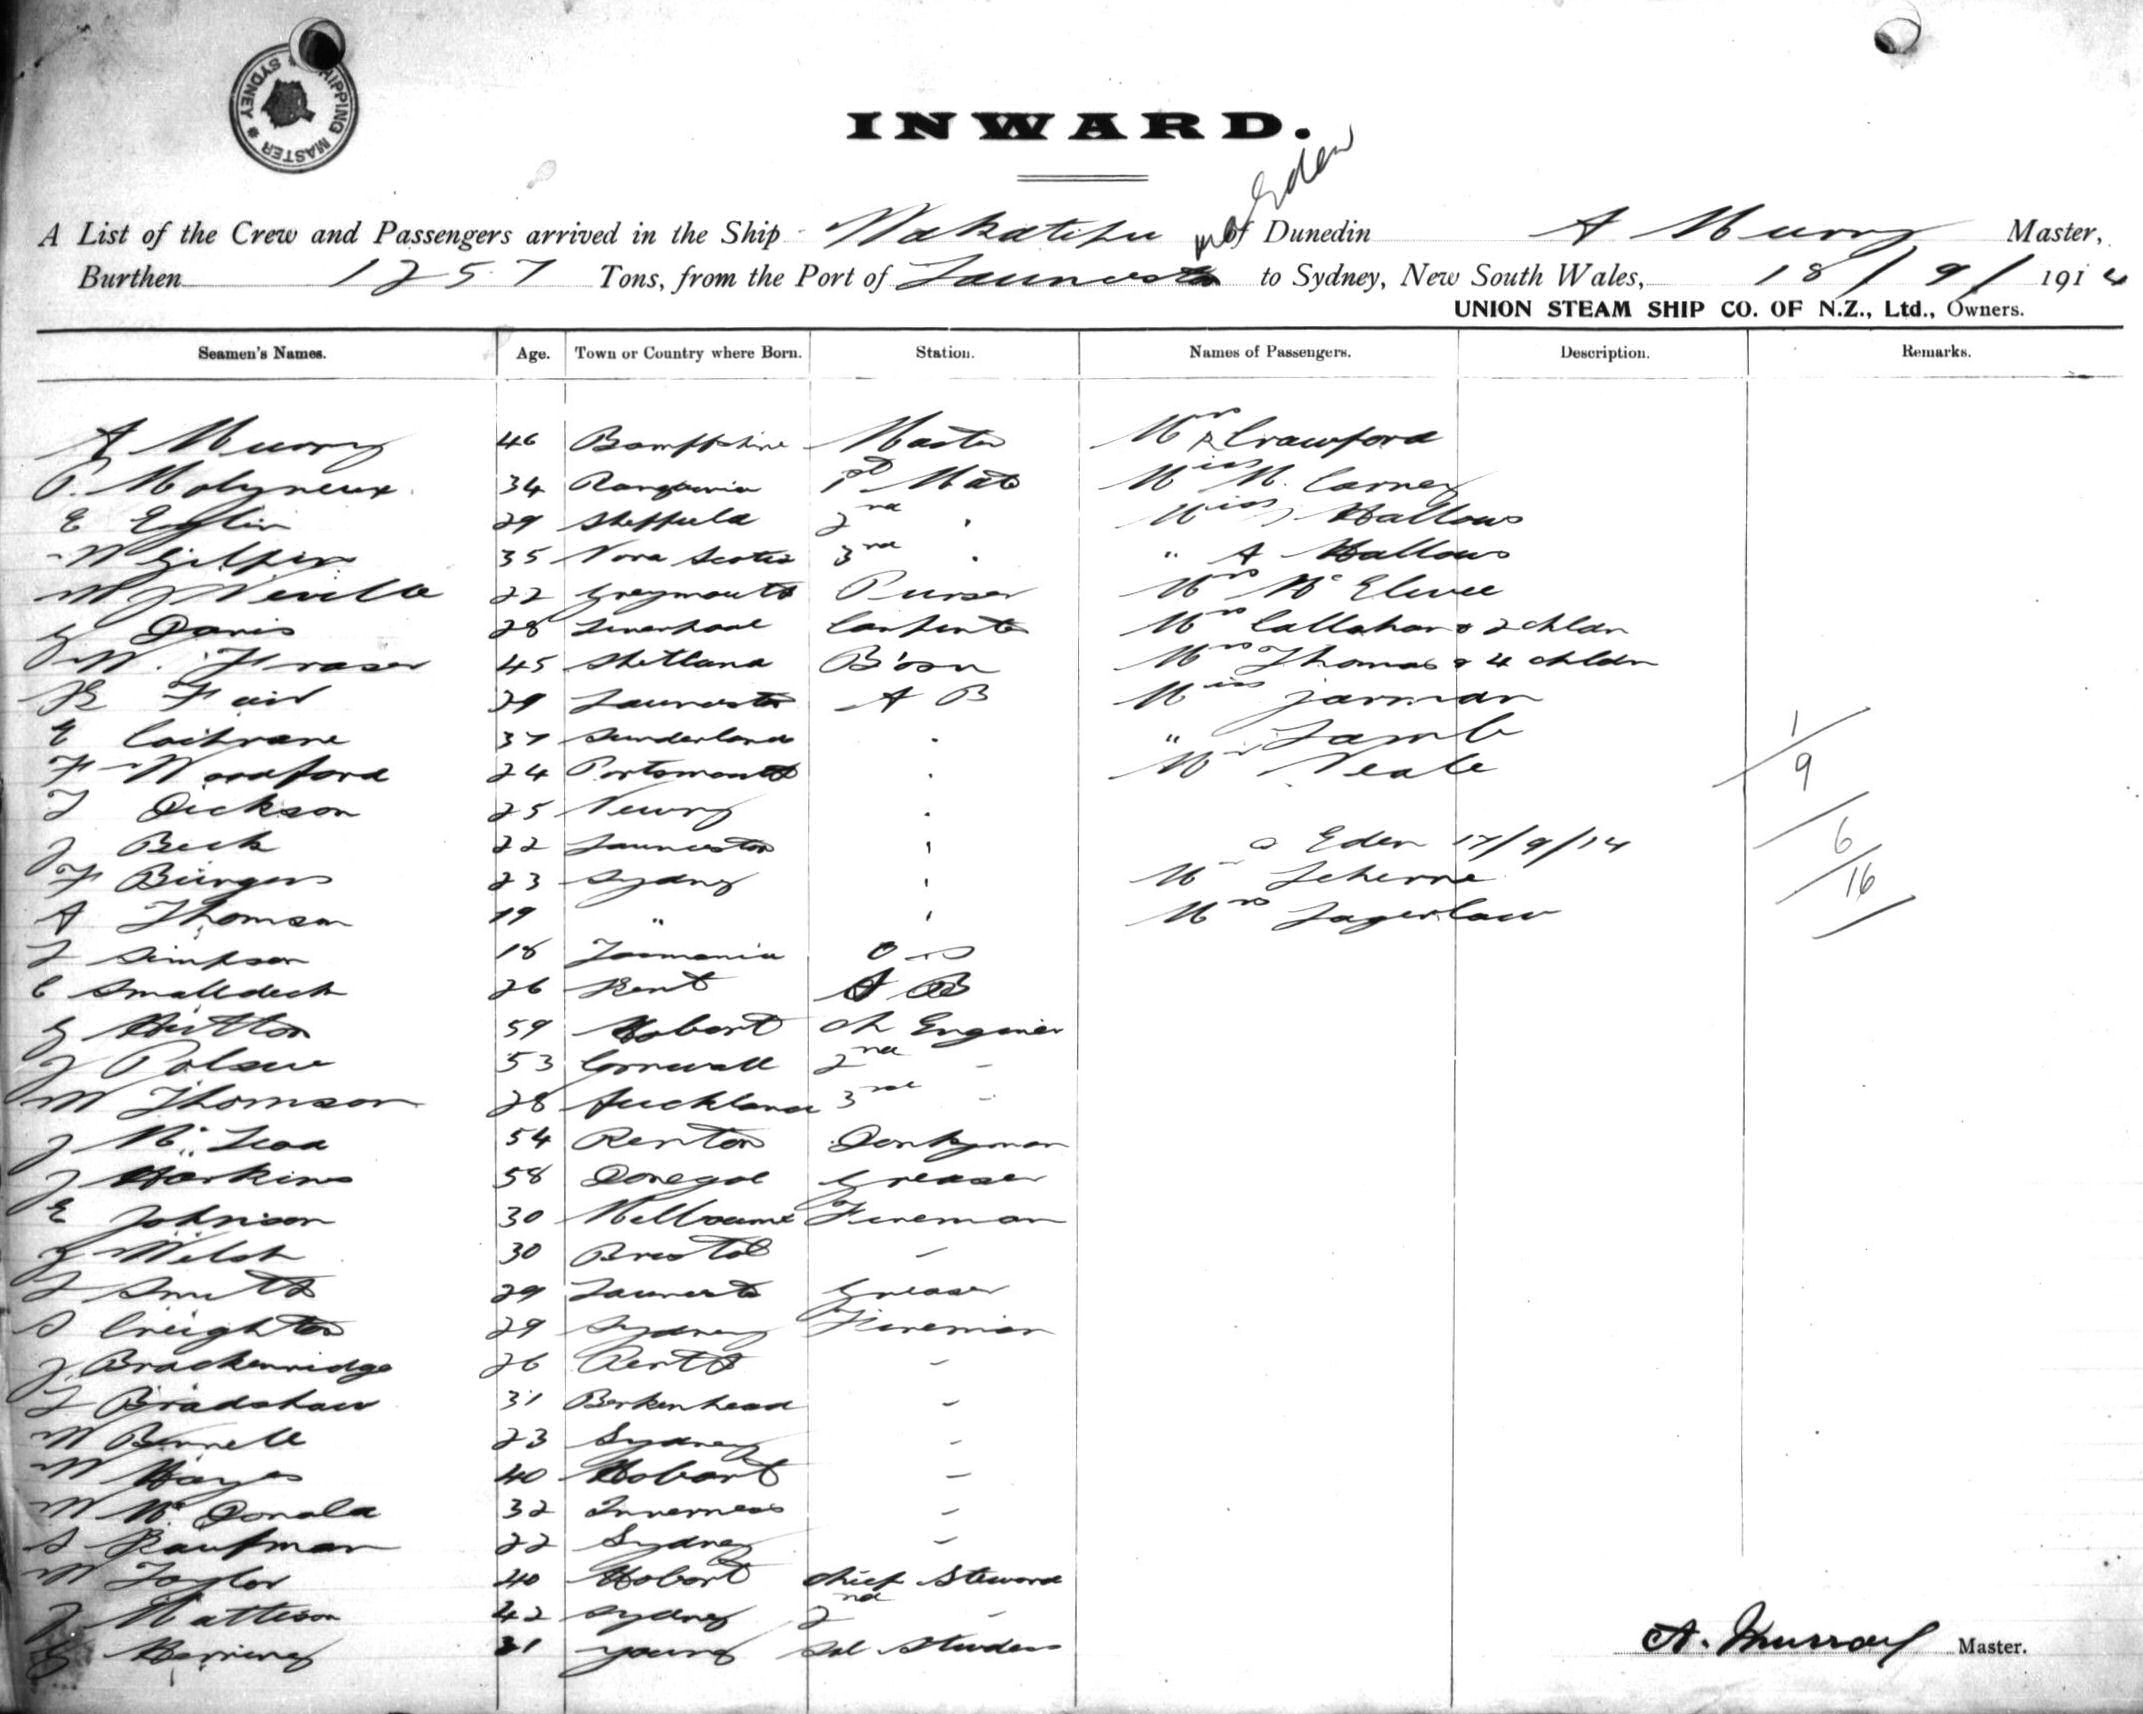 SHIPPING MASTER SYDNEY
INWARD.
via Eden
A List of the Crew and Passengers arrived in the Ship Wakatipu of Dunedin A Murray Master,
Burthen 1257 Tons, from the Port of Launceston to Sydney, New South Wales, 18/9/1914
UNION STEAM SHIP CO. OF N.Z., Ltd., Owners.
Seamen's Names. Age. Town or Country where Born. Station. Names of Passengers. Description. Remarks.
A Murray 46 Banffshire Master Mrs Crawford
P. Molyneux 34 1st Mate Miss M. Carney
E 29 Sheffield 2nd " Miss J Hallows
W Gilpin 35 Nova Scotia 3rd " " A Hallows
W J Neville 22 Greymouth Purser Mrs McElwee
G Davis 28 Liverpool Carpenter Mrs Callahan & 2 chldn
W. Fraser 45 Shetland B'osn Mrs Thomas & 4 chldn
Fair 29 Launceston A B Miss Jarman
E Cochrane 37 Sunderland " " Lamb
F Woodford 24 Portsmouth " Mr Neale 1/9
T Dickson 25 Newry "
J Beck 22 Launceston " Eden 17/9/14 6
F Burgess 23 Sydney " Mr 16
A Thomson 19 " " Mrs
T Simpson 18 Tasmania O S
C Smalldeck 26 Kent A B
G Hutton 59 Hobart Ch Engineer
J Polsue 53 Cornwall 2nd -
W Thomson 28 Auckland 3rd -
J McLeod 54 Renton Donkeyman
J Harkins 58 Donegal Greaser
E Johnson 30 Melbourne Fireman
J Welsh 30 Bristol -
T Smith 29 Launceston Greaser
S Creighton 29 Sydney Fireman
J. Brackenridge 26 Perth -
T Bradshaw 31 Berkenhead -
W Bennell 23 Sydney -
W Hayes 40 Hobart -
W McDonald 32 Inverness -
S Kaufman 22 Sydney -
W Taylor 40 Hobart Chief Steward
J Mattison 42 Sydney 2nd -
G Herring 21 Young Sal Stwdess
A. Murray Master.